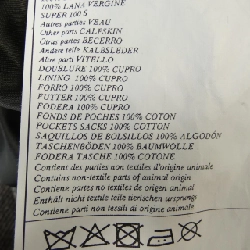 100% LANA VERGINE
SUPER 100 S
Autres parties VEAU
Other parts CALFSKIN
Otras partes BECERRO
Andere teile KALBSLEDER
Altre parti VITELLO
DOUBLURE 100% CUPRO
LINING 100% CUPRO
FORRO 100% CUPRO
FUTTER 100% CUPRO
FODERA 100% CUPRO
FONDS DE POCHES 100% COTON
POCKETS SACKS 100% COTTON
SAQUILLOS DE BOLSILLOS 100% ALGODÓN
TASCHENBÖDEN 100% BAUMWOLLE
FODERA TASCHE 100% COTONE
Contient des parties non textiles d'origine animale
Contains non-textile parts of animal origin
Contiene partes no textiles de origen animal
Enthält nicht textile teile tierischen ursprungs
Contiene parti non tessili di origine animale